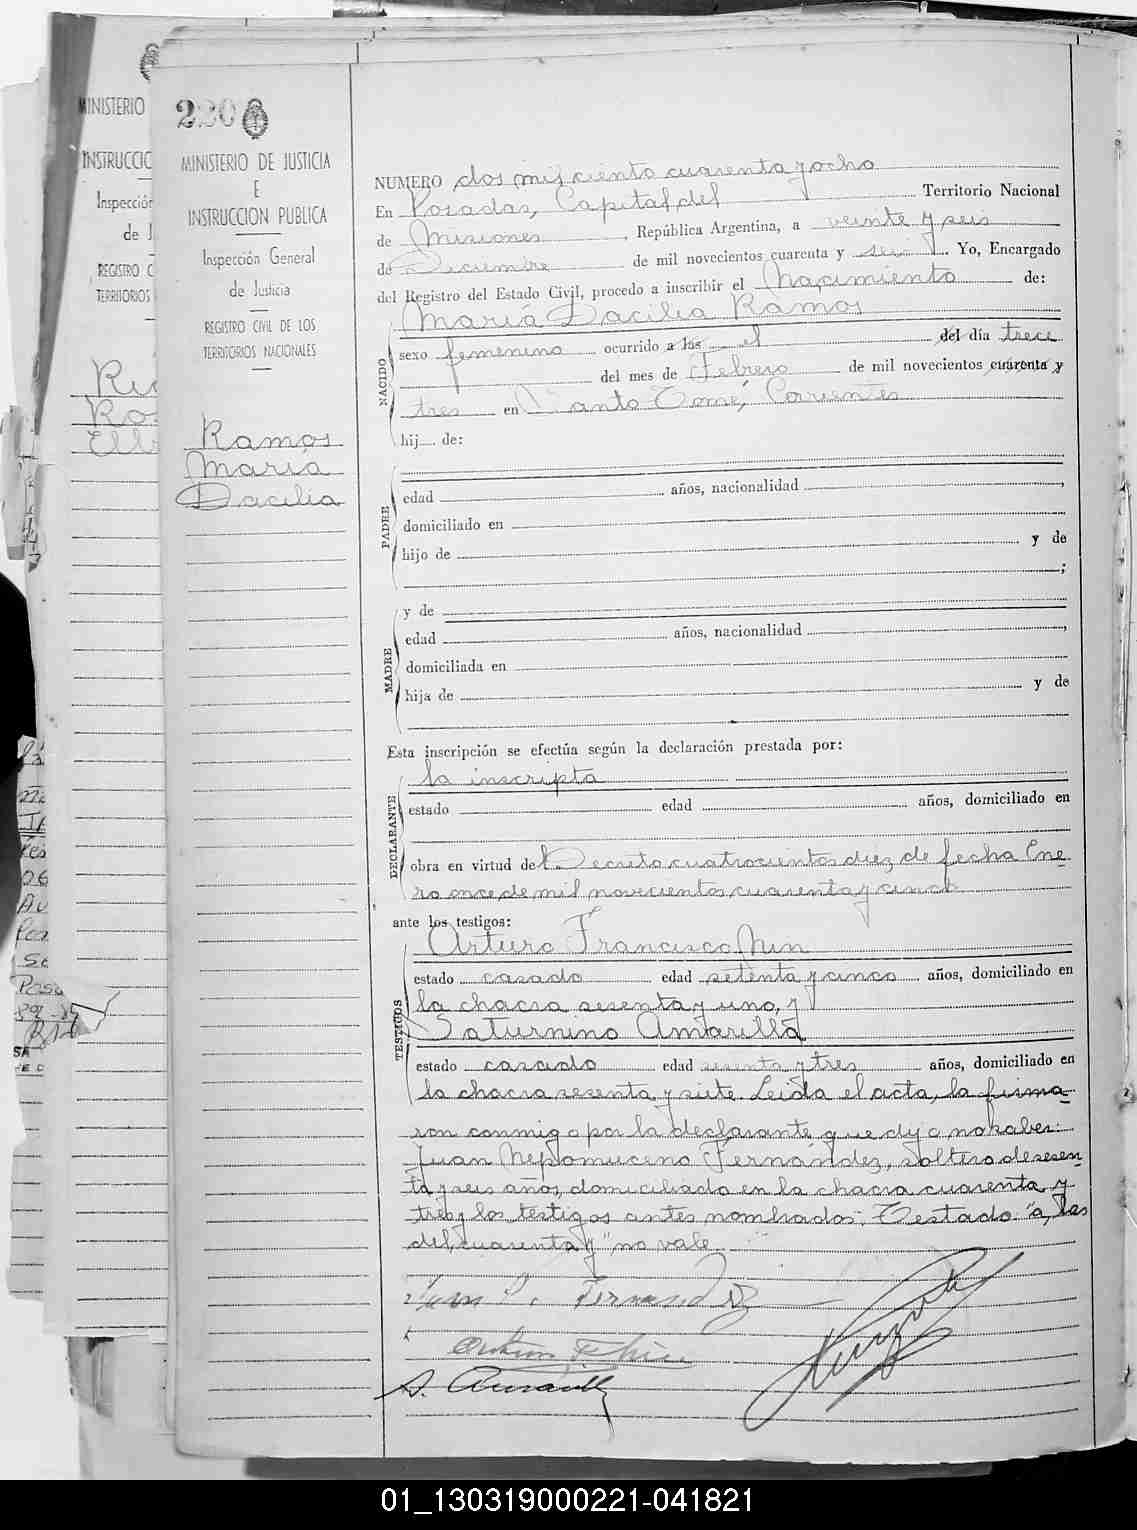 230
MINISTERIO DE JUSTICIA
E
INSTRUCCION PUBLICA
Inspección General
de Justicia
REGISTRO CIVIL DE LOS
TERRITORIOS NACIONALES
Ramos
María
Dacilia
NUMERO dos mil ciento cuarenta y ocho
En Posadas, Capital del Territorio Nacional
de Misiones, República Argentina, a veinte y seis
de Diciembre de mil novecientos cuarenta y seis. Yo, Encargado
del Registro del Estado Civil, procedo a inscribir el Nacimiento de:
María Dacilia Ramos
NACIDO
sexo femenino ocurrido a las el del día trece
del mes de Febrero de mil novecientos cuarenta y
tres en Santo Tomé, Corrientes
hij de:
PADRE
edad años, nacionalidad ,
domiciliado en
hijo de y de
;
MADRE
y de
edad años, nacionalidad ,
domiciliada en
hija de y de
Esta inscripción se efectúa según la declaración prestada por:
DECLARANTE
la inscripta
estado edad años, domiciliado en
obra en virtud del Decreto cuatrocientos diez de fecha Ene-
ro once de mil novecientos cuarenta y cinco
ante los testigos:
TESTIGOS
Arturo Francisco Nin
estado casado edad setenta y cinco años, domiciliado en
la chacra sesenta y uno, y
Saturnino Amarilla
estado casado edad sesenta y tres años, domiciliado en
la chacra sesenta y siete. Leída el acta, la firma-
ron conmigo por la declarante que dijo no saber:
Juan Nepomuceno Fernández, soltero de sesen-
ta y seis años, domiciliado en la chacra cuarenta y
tres y los testigos antes nombrados: Testado: "a, las
del, cuarenta y" no vale.
Juan N. Fernandez
S. Amarilla
MINISTERIO
INSTRUCCIO
Inspección
de J
REGISTRO C
TERRITORIOS
01_130319000221-041821